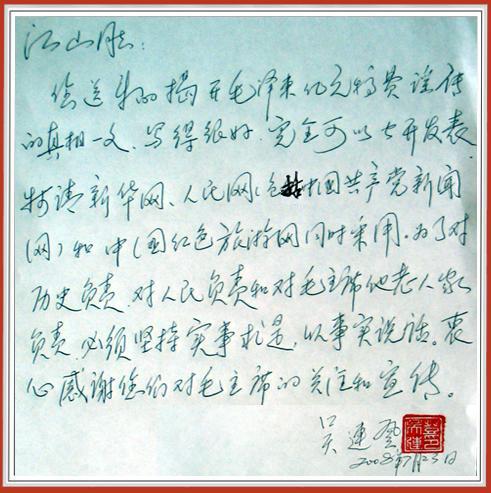 江山同志：
您送来的揭开毛泽东亿元稿费谣传
的真相一文，写得很好，完全可以公开发表，
特请新华网、人民网（包括中国共产党新闻
网）和中国红色旅游网同时采用。为了对
历史负责，对人民负责和对毛主席他老人家
负责，必须坚持实事求是，以事实说话。衷
心感谢您们对毛主席的关注和宣传。
吴连登
2008年7月25日